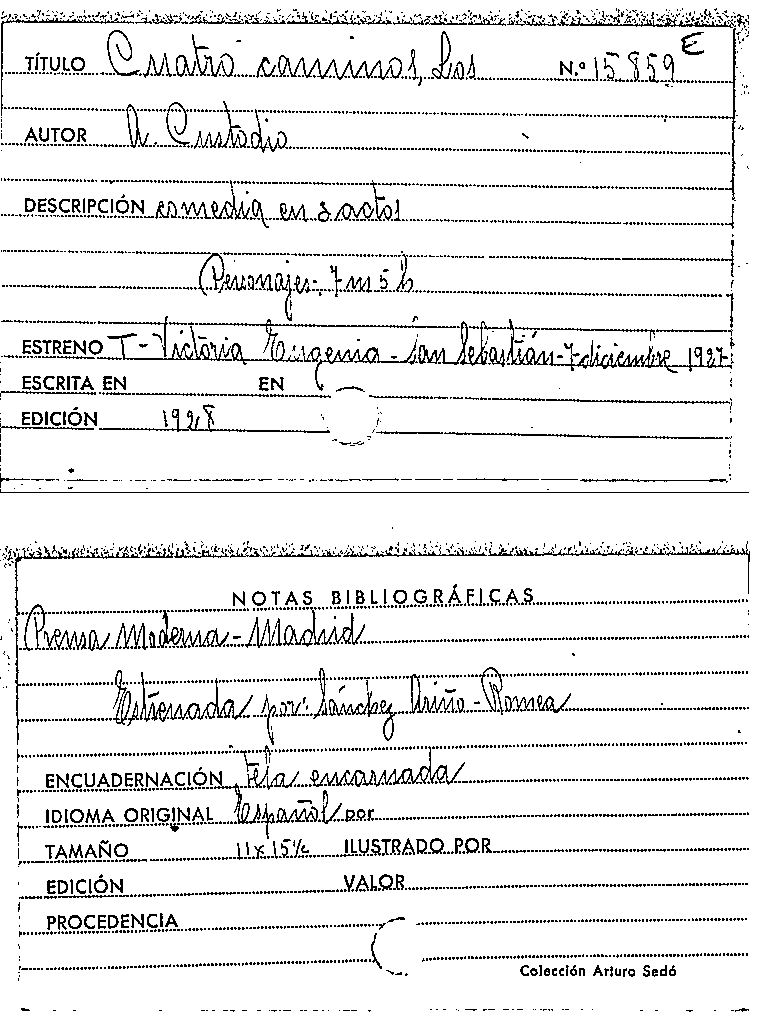 E
TÍTULO Cuatro caminos, Los N.º 15859
AUTOR A. Custodio
DESCRIPCIÓN comedia en 3 actos
Personajes: 7 m 5 h
ESTRENO T - Victoria Eugenia - San Sebastián - 7 diciembre 1927
ESCRITA EN EN
EDICIÓN 1928
NOTAS BIBLIOGRÁFICAS
Prensa Moderna - Madrid
Estrenada por: Sánchez Ariño - Romea
ENCUADERNACIÓN Tela encarnada
IDIOMA ORIGINAL Español por
TAMAÑO 11 x 15½ ILUSTRADO POR
EDICIÓN VALOR
PROCEDENCIA
Colección Arturo Sedó